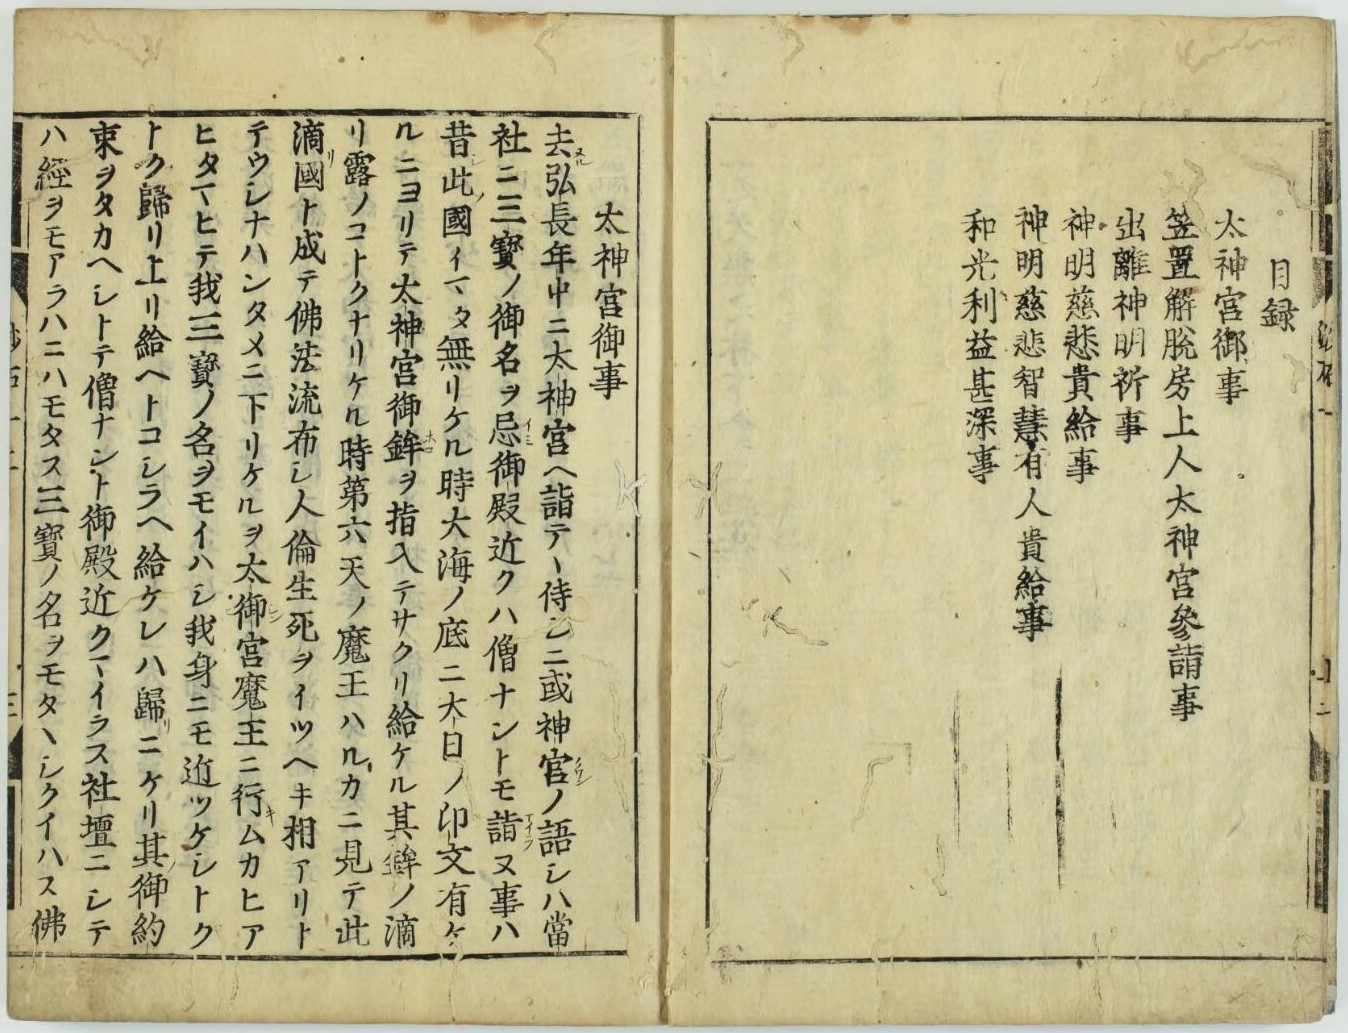 目録
太神宮御事
笠置解脱房上人太神宮參詣事
出離神明祈事
神明慈悲貴給事
神明慈悲智慧有人貴給事
和光利益甚深事
太神宮御事
去弘長年中ニ太神宮ヘ詣テ侍シニ或神官ノ語シハ當
社ニ三寶ノ御名ヲ忌御殿近クハ僧ナントモ詣ヌ事ハ
昔此國イマタ無リケル時大海ノ底ニ大日ノ印文有ケ
ルニヨリテ太神宮御鉾ヲ指入テサクリ給ケル其鉾ノ滴
リ露ノコトクナリケル時第六天ノ魔王ハルカニ見テ此
滴國ト成テ佛法流布シ人倫生死ヲイツヘキ相アリト
テウシナハンタメニ下リケルヲ太御宮魔王ニ行ムカヒア
ヒタマヒテ我三寶ノ名ヲモイハシ我身ニモ近ツケシトク
トク歸リ上リ給ヘトコシラヘ給ケレハ歸ニケリ其御約
束ヲタカヘシトテ僧ナント御殿近クマイラス社壇ニシテ
ハ經ヲモアラハニハモタス三寶ノ名ヲモタヽシクイハス佛